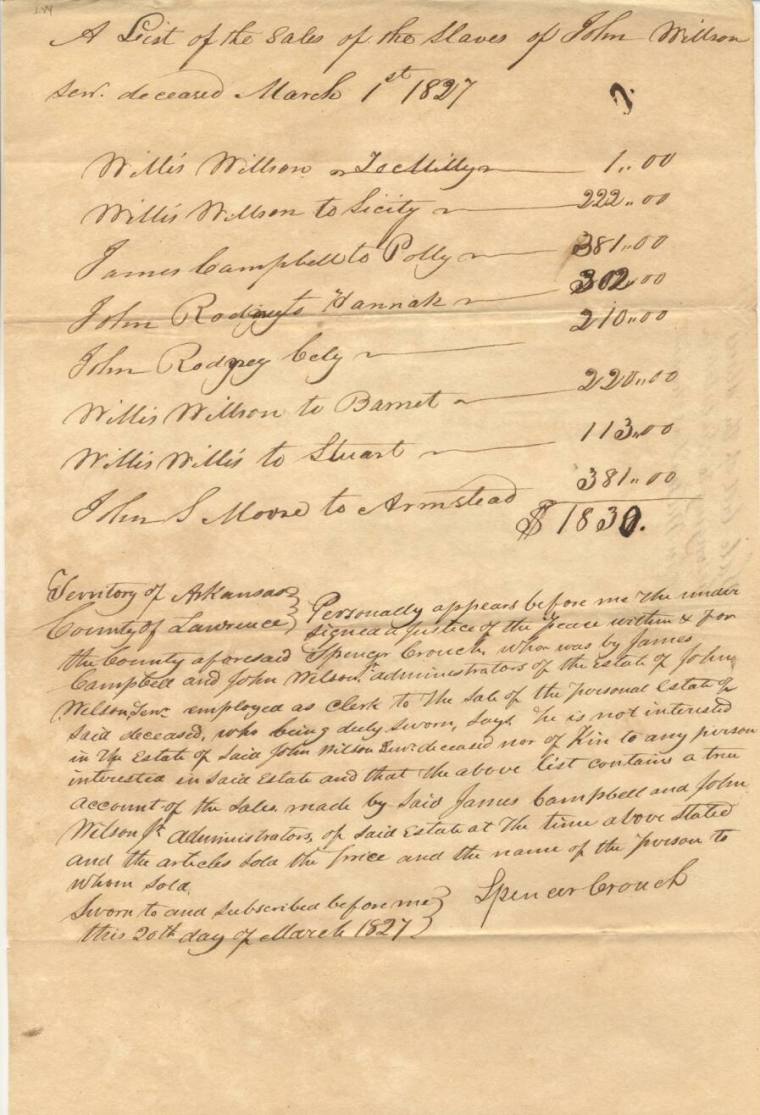 A List of the Sales of the Slaves of John Willson
senr. deceased March 1st 1827
Willis Willson to Milly 1,,00
Willis Willson to Sicity 222,,00
James Campbell to Polly 381,,00
John Rodney to Hannah 302,,00
John Rodney Cely 210,,00
Willis Willson to Barnet 220,,00
Willis Willis to Stuart 113,,00
John S Moore to Armstead 381,,00
$ 1830.
Territory of Arkansas
County of Lawrence } Personally appears before me the under
signed a Justice of the Peace within & for
the County aforesaid Spencer Crouch who was by James
Campbell and John Wilson Jr administrators of the Estate of John
Wilson Senr employed as Clerk to the Sale of the Personal Estate of
said deceased, who being duly sworn, says he is not interested
in the Estate of Said John Wilson Senr deceased nor of Kin to any person
interested in Said Estate and that the above list contains a true
account of the Sales made by Said James Campbell and John
Wilson Jr Administrators of Said Estate at the time above stated
and the articles Sold the price and the name of the Person to
whom sold.
Sworn to and Subscribed before me } Spencer Crouch
this 20th day of March 1827 }